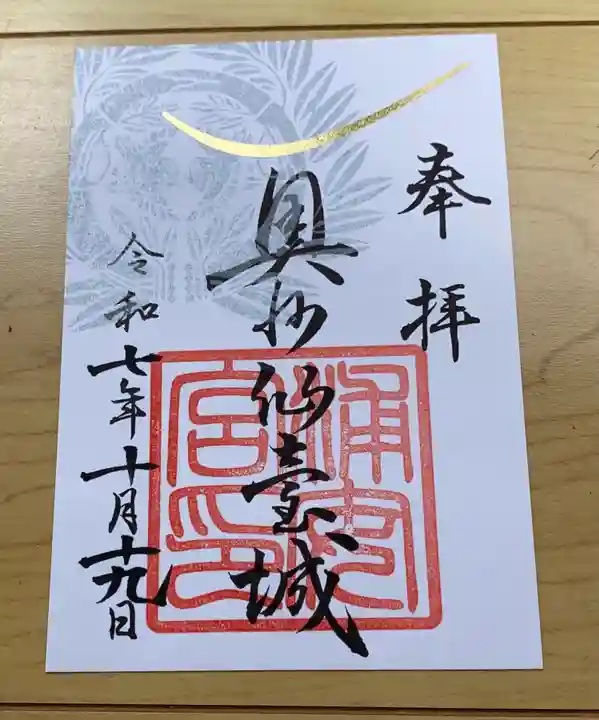 奉拝
奥州仙臺城
浦安宮印
令和七年十月十九日